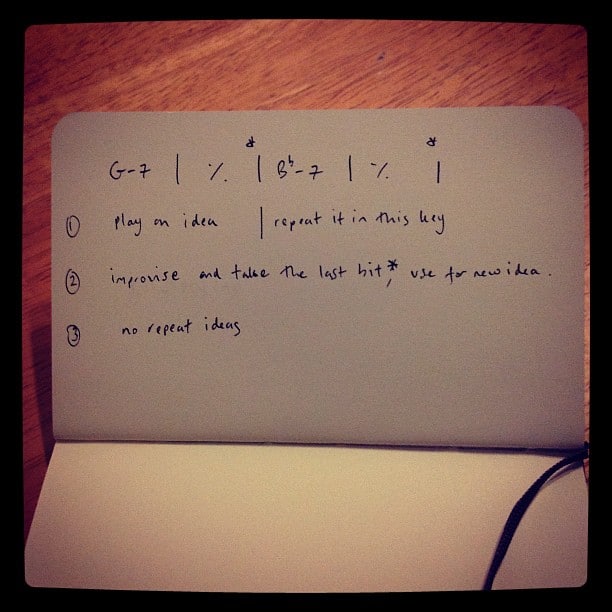 * *
G-7 | ٪ | Bb-7 | ٪ |
① play an idea | repeat it in this key
② improvise and take the last bit*, use for new idea.
③ no repeat ideas